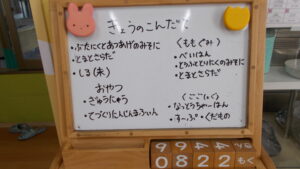 きょうのこんだて
・ぶたにくとあつあげのみそに
・とまとさらだ
・しる(未)
おやつ
・ぎゅうにゅう
・てづくりにんじんまふぃん
〈ももぐみ〉
・べいはん
・とうふととりにくのみそに
・とまとさらだ
〈ごごしょく〉
・なっとうちゃーはん
・すーぷ・くだもの
0822もく